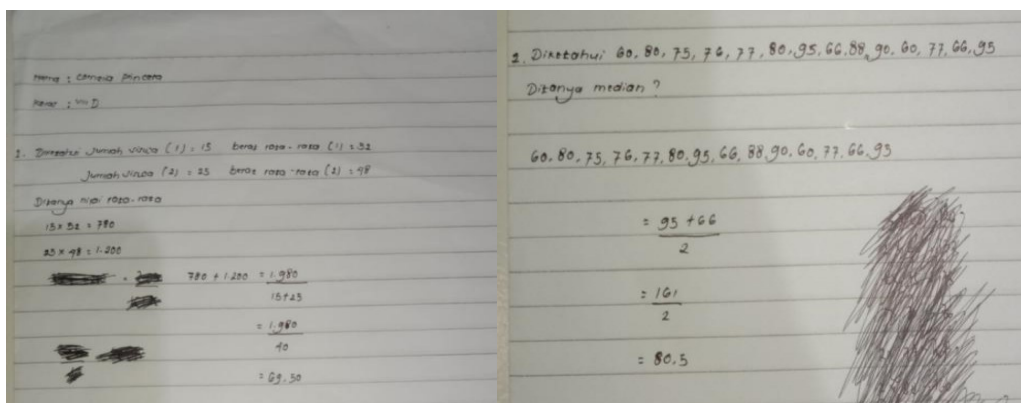 Nama : Cornelia pincera
Kelas : VIII D
1. Diketahui Jumlah siswa (1) = 15 beras rata-rata (1) = 52
Jumlah siswa (2) = 25 beras rata-rata (2) = 48
Ditanya nilai rata-rata
15 x 52 = 780
25 x 48 = 1.200
780 + 1.200 = 1.980
15+25
= 1.980
40
= 69,50
2. Diketahui 60, 80, 75, 76, 77, 80, 95, 66, 88, 90, 60, 77, 66, 95
Ditanya median ?
60, 80, 75, 76, 77, 80, 95, 66, 88, 90, 60, 77, 66, 95
= 95 + 66
2
= 161
2
= 80,5